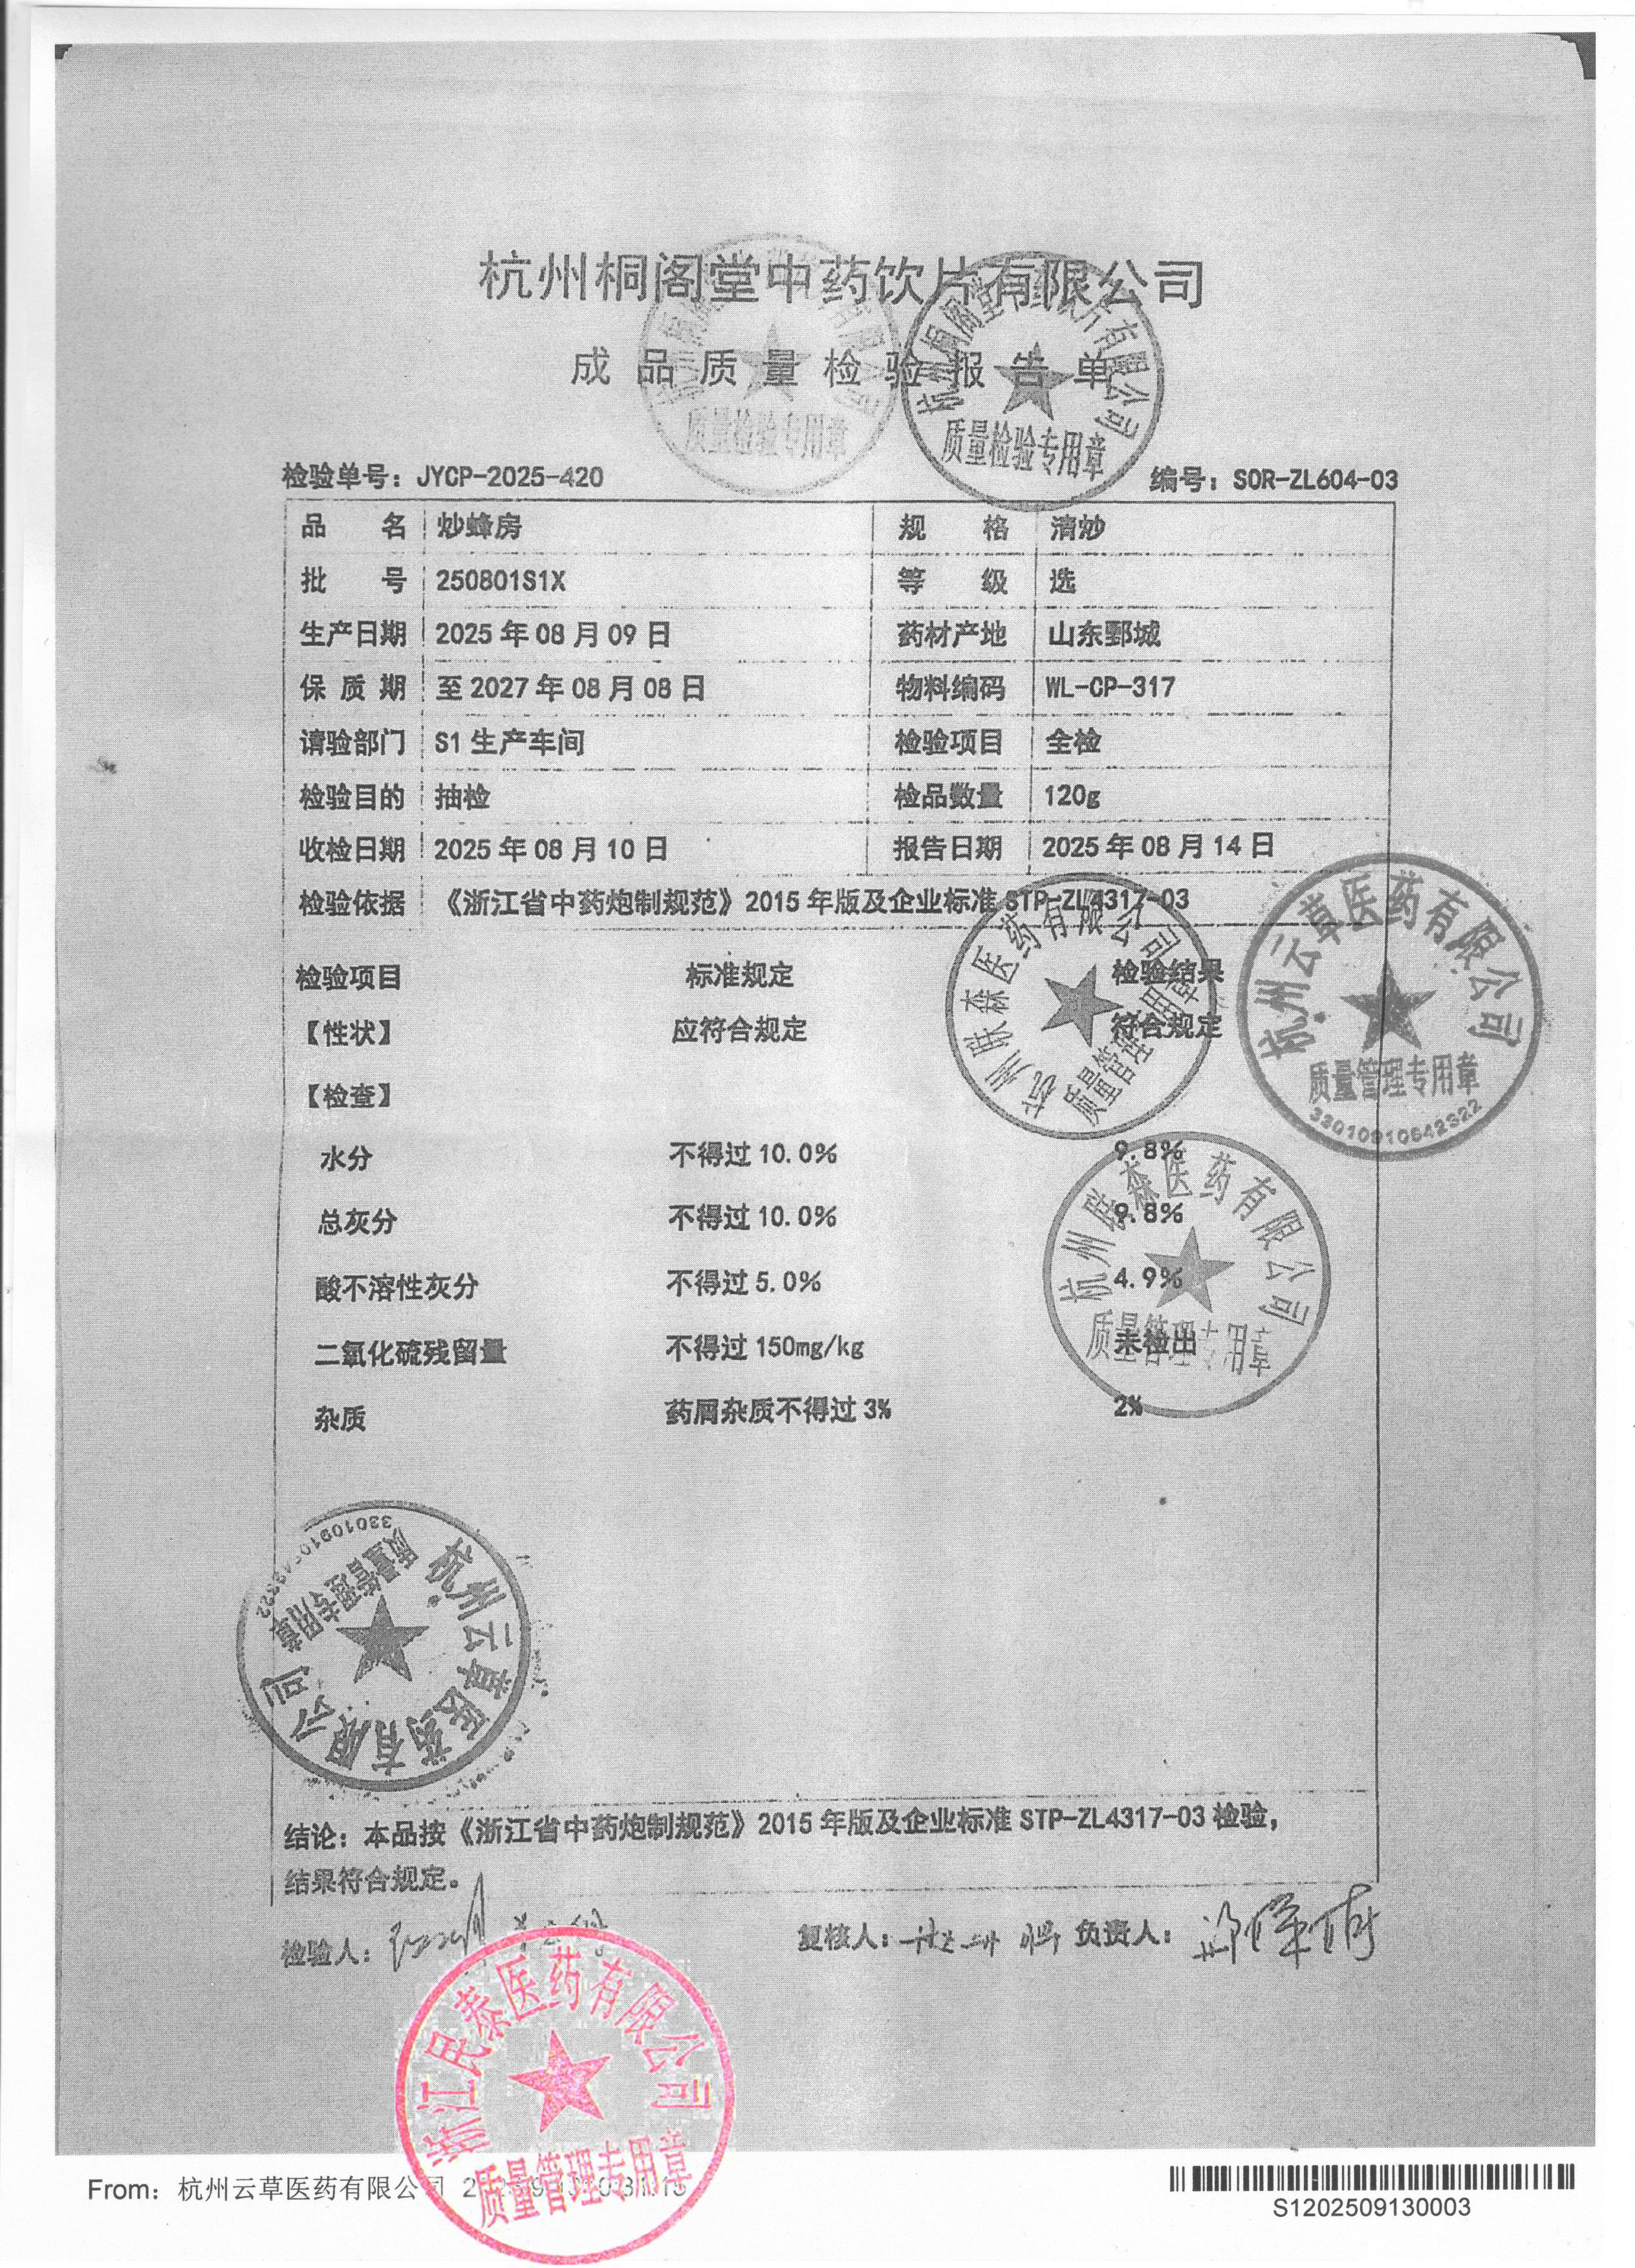 杭州桐阁堂中药饮片有限公司
成品质量检验报告单
检验单号：JYCP-2025-420 编号：SOR-ZL604-03
品名 炒蜂房 规格 清炒
批号 250801S1X 等级 选
生产日期 2025年08月09日 药材产地 山东鄄城
保质期 至2027年08月08日 物料编码 WL-CP-317
请验部门 S1生产车间 检验项目 全检
检验目的 抽检 检品数量 120g
收检日期 2025年08月10日 报告日期 2025年08月14日
检验依据 《浙江省中药炮制规范》2015年版及企业标准STP-ZL4317-03
检验项目 标准规定 检验结果
【性状】 应符合规定 符合规定
【检查】
水分 不得过10.0% 9.8%
总灰分 不得过10.0% 9.8%
酸不溶性灰分 不得过5.0% 4.9%
二氧化硫残留量 不得过150mg/kg 未检出
杂质 药屑杂质不得过3% 2%
结论：本品按《浙江省中药炮制规范》2015年版及企业标准STP-ZL4317-03检验，
结果符合规定。
检验人： 复核人： 负责人：
杭州桐阁堂中药饮片有限公司
质量检验专用章
质量检验专用章
杭州联森医药有限公司
质量管理专用章
杭州云草医药有限公司
质量管理专用章
33010910642322
杭州联森医药有限公司
质量管理专用章
杭州云草医药有限公司
质量管理专用章
浙江民泰医药有限公司
质量管理专用章
From：杭州云草医药有限公司
S1202509130003